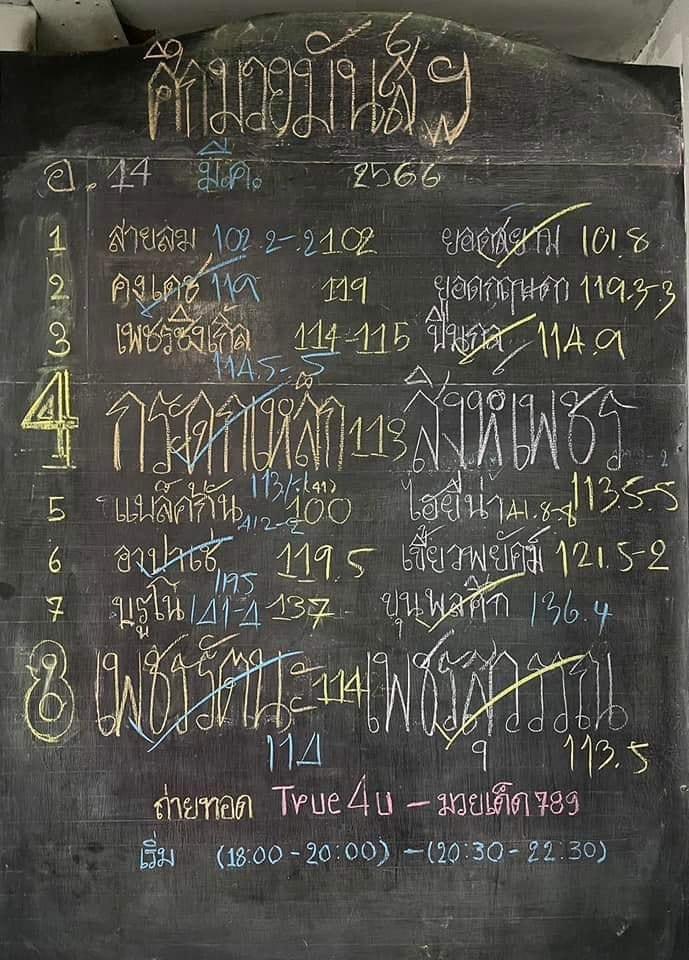 ศึกมวยมันส์ฯ
อ. 14 มี.ค. 2566
1 สายลม 102.2-.2 102 ยอดสยาม 101.8
2 คงเดช 119 119 ยอดกฤษดา 119.3-3
3 เพชรซิงเกิ้ล 114-115 ปืนกล 114.9
114.5-5
4 กระดูกเหล็ก 113 สิงห์เพชร
5 แบล็คกัน 113/5 (41) 100 ไฮยีน่า 41.8-8 113.5-5
412-2
6 อาปาเช่ 119.5 เขี้ยวพยัคฆ์ 121.5-2
7 บรูโน่ 137 ขุนพลศึก 136.4
8 เพชรรัตนะ 114 เพชรสุวรรณ
114 9 113.5
ถ่ายทอด True4u - มวยเด็ด789
เริ่ม (18:00-20:00) -(20:30-22:30)